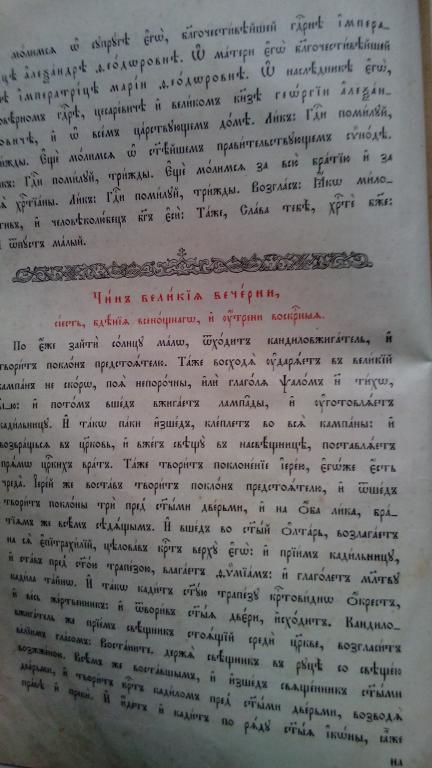 молимсѧ ѡ҆ сꙋпрꙋгѣ є҆гѡ̀, бл҃гочести́вѣйшей гдⷭ҇рнѣ і҆мпера-
цѣ а҆леѯа́ндрѣ ѳео́дѡровнѣ. Ѡ҆ ма́тери є҆гѡ̀ бл҃гочести́вѣйшей
нѣ и҆мператри́цѣ марі́и ѳео́дѡровнѣ. Ѡ҆ наслѣ́дникѣ є҆гѡ̀,
вѣ́рномъ гдⷭ҇рѣ, цеса́ревичѣ и҆ вели́комъ кн҃зѣ геѡ́ргіи а҆леѯа́н-
ровичѣ, и҆ ѡ҆ все́мъ ца́рствꙋющемъ до́мѣ. Ли́къ: Гдⷭ҇и поми́лꙋй,
три́жды. Є҆щѐ мо́лимсѧ ѡ҆ ст҃ѣ́йшемъ прави́тельствꙋющемъ сѷно́дѣ.
къ: Гдⷭ҇и поми́лꙋй, три́жды. Є҆щѐ мо́лимсѧ за всю̀ бра́тїю и҆ за
ѧ҆ хрⷭ҇тїа́ны. Ли́къ: Гдⷭ҇и поми́лꙋй, три́жды. Возгла́съ: Ꙗ҆́кѡ ми́ло-
тивъ, и҆ человѣколю́бецъ бг҃ъ є҆сѝ: Та́же, Сла́ва тебѣ̀, хрⷭ҇тѐ бж҃е:
И҆ ѿпꙋ́стъ ма́лый.
Чи́нъ вели́кїѧ вече́рни,
сі́есть, бдѣ́нїѧ всено́щнагѡ, и҆ ᲂу҆́трени воскрⷭ҇ныѧ.
По є҆́же зайтѝ со́лнцꙋ ма́лѡ, ѿхо́дитъ кандиловжига́тель, и҆
твори́тъ покло́нъ предстоѧ́телю. Та́же восходѧ̀ ᲂу҆дарѧ́етъ въ вели́кїй
кампа́нъ не ско́рѡ, поѧ̀ непоро́чны, и҆лѝ глаго́лѧ ѱало́мъ н҃ ти́хѡ,
и҆ пото́мъ вше́дъ вжига́етъ лампа́ды, и҆ ᲂу҆готовлѧ́етъ
кади́льницꙋ. И҆ та́кѡ па́ки и҆зше́дъ, кле́плетъ во всѧ̑ кампа̑ны: и҆
возвра́щьсѧ въ цр҃ковь, и҆ вже́гъ свѣщꙋ̀ въ насвѣ́щницѣ, поставлѧ́етъ
прѧ́мѡ цр҃кихъ вра́тъ. Та́же твори́тъ поклоне́нїе і҆ере́ю, є҆гѡ́же є҆́сть
чреда̀. І҆ере́й же воста́въ твори́тъ покло́нъ предстоѧ́телю, и҆ ѿше́дъ
твори́тъ покло́ны трѝ пред̾ ст҃ы́ми две́рьми, и҆ на ѻ҆́ба ли́ка, бра́-
тїѧмъ же всѣ̑мъ сѣдѧ́щымъ. И҆ вше́дъ во ст҃ы́й ѻ҆лта́рь, возлага́етъ
на сѧ̀ є҆пїтрахи́лїй, цѣлова́въ крⷭ҇тъ верхꙋ̀ є҆гѡ̀: и҆ прїи́мъ кади́льницꙋ,
и҆ ста́въ пред̾ ст҃о́ю трапе́зою, влага́етъ ѳѷмїа́мъ: и҆ глаго́летъ мл҃твꙋ
кади́ла та́йнѡ. И҆ та́кѡ кади́тъ ст҃ꙋ́ю трапе́зꙋ крⷭ҇тови́днѡ ѻ҆́крестъ,
и҆ ве́сь же́ртвенникъ: и҆ ѿвори́въ ст҃ы̑ѧ две́ри, и҆схо́дитъ. Кандило-
вжига́тель же прїи́мъ свѣ́щникъ стоѧ́щїй средѝ цр҃кве, возгласи́тъ
вели́кимъ гла́сомъ: Воста́ните. держѧ̀ свѣ́щникъ въ рꙋцѣ̀ со свѣще́ю
возжже́ною. Всѣ̑мъ же воста́вшымъ, и҆ и҆зше́дъ свѧще́нникъ ст҃ы́ми
две́рьми, и҆ твори́тъ крⷭ҇тъ кади́ломъ пред̾ ст҃ы́ми две́рьми, возводѧ̀
пра́вѣ и҆ пре́ки. И҆ и҆́детъ и҆ кади́тъ по рѧ́дꙋ ст҃ы̑ѧ і҆кѡ́ны, ꙗ҆̀же
на